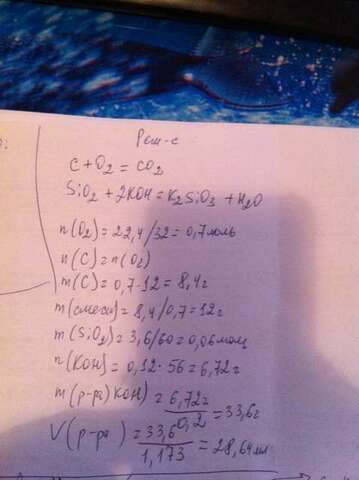 Реш-е
C + O2 = CO2
SiO2 + 2KOH = K2SiO3 + H2O
n(O2) = 22,4/32 = 0,7 моль
n(C) = n(O2)
m(C) = 0,7 · 12 = 8,4г
m(смеси) = 8,4/0,7 = 12г
m(SiO2) = 3,6/60 = 0,06 моль
n(KOH) = 0,12 · 56 = 6,72г
m(р-ра) KOH) = 6,72г/0,2 = 33,6г
V(р-ра) = 33,6/1,173 = 28,64мл